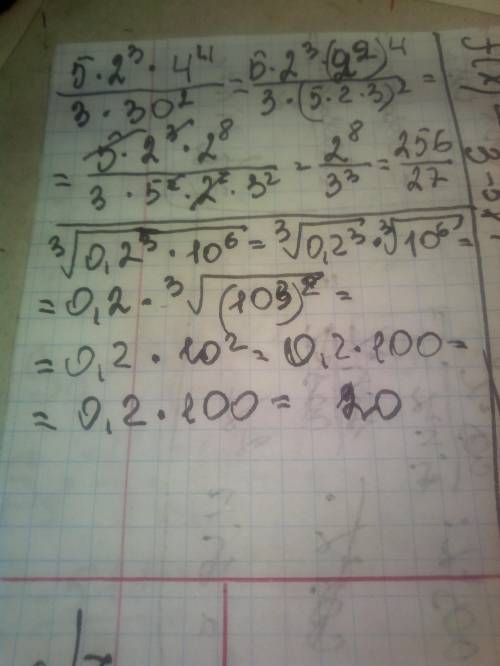 (5·2³·4⁴)/(3·30²) = (5·2³·(2²)⁴)/(3·(5·2·3)²) =
= (5·2³·2⁸)/(3·5²·2²·3²) = 2⁸/3³ = 256/27
∛(0,2³·10⁶) = ∛(0,2³)·∛(10⁶) =
= 0,2·∛((10³)²) =
= 0,2·10² = 0,2·100 =
= 0,2·100 = 20